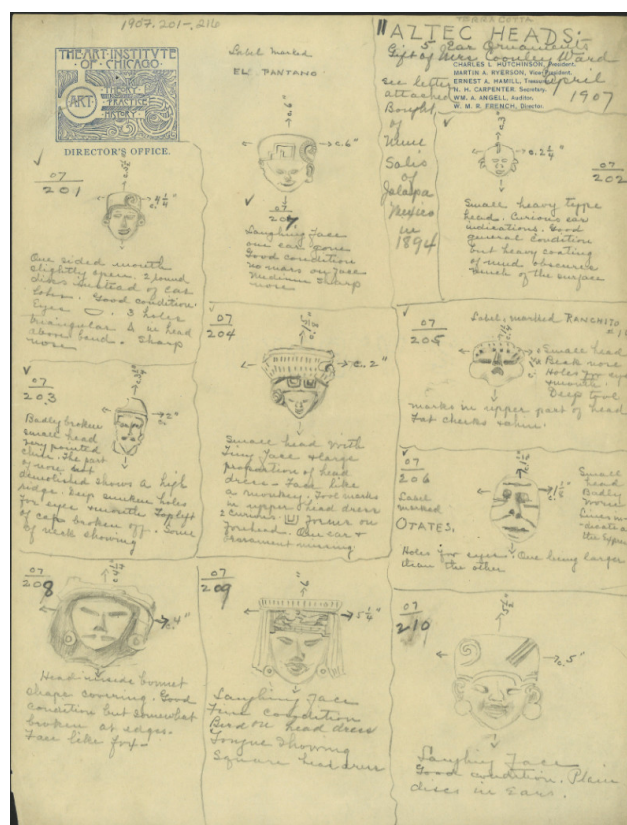 1907.201-216
TERRA COTTA
"AZTEC HEADS:
5 Ear Ornaments
Gift of Mrs Coonley Ward
April
1907
see letter
attached
Bought
of
Sales
of
Jalapa
Mexico
in
1894
THE·ART·INSTITVTE
·OF·CHICAGO·
ART
THEORY
PRACTICE
HISTORY
DIRECTOR'S OFFICE.
CHARLES L. HUTCHINSON, President.
MARTIN A. RYERSON, Vice President.
ERNEST A. HAMILL, Treasurer.
N. H. CARPENTER, Secretary.
WM. A. ANGELL, Auditor.
W. M. R. FRENCH, Director.
Label marked
EL PANTANO
07
201
c. 4 1/4"
One sided mouth
slightly open. 2 round
discs instead of ear
lobes. Good condition.
Eyes. 3 holes
triangular Δ in head
above band. Sharp
nose
c. 6"
c. 6"
07
207
Laughing Face
one ear gone
Good condition
no mars on face
Medium sharp
nose
07
202
c. 2 1/4"
Small heavy type
head. Curious ear
indications. Good
general condition
but heavy coating
of mud obscures
much of the surface
07
203
2"
Badly broken
small head
very pointed
chin. The part
of nose not
demolished shows a high
ridge. Deep sunken holes
for eyes & mouth. Top left
of cap broken off. Some
of neck showing
07
204
c. 2"
Small head with
Tiny face & large
proportion of head
dress - Face like
a monkey. Tool marks
in upper head dress
2 curious forms on
forehead. One ear &
ornament missing
07
205
Label, marked RANCHITO
Small head
Beak nose
Holes for eyes
& mouth.
Deep tool
marks in upper part of head
Fat cheeks
07
206
Label
marked
OTATES.
Small
head
Badly
worn
Lines in-
dicate
the
Holes for eyes. One being larger
than the other
07
208
c. 4"
Head inside bonnet
shape covering. Good
condition but somewhat
broken at edges.
Face like fox -
07
209
5 1/4"
Laughing Face
Fine condition
Bird on head dress
Tongue showing
Square head dress
07
210
c. 5"
Laughing Face
Good condition. Plain
discs in ears.